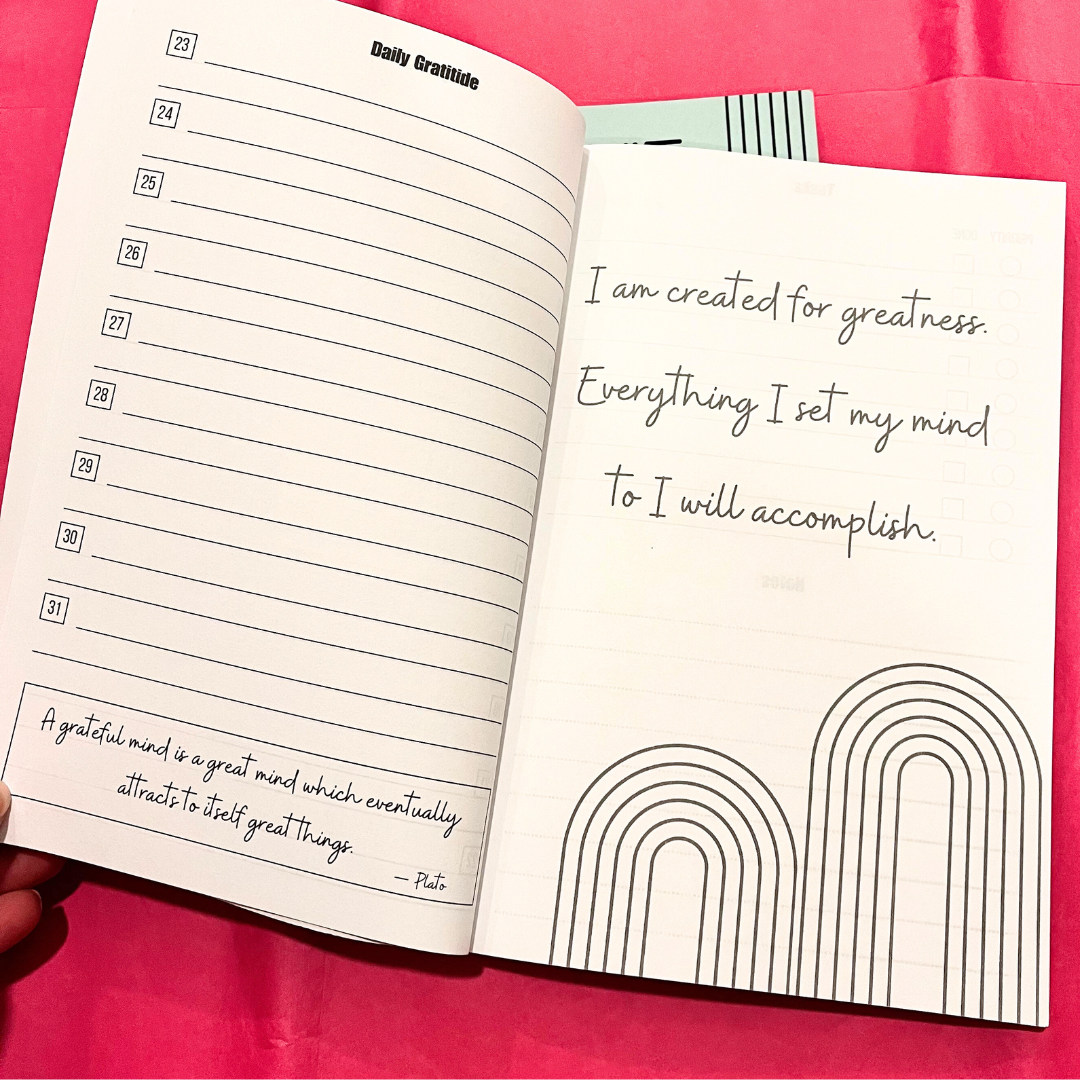 Daily Gratitide
23
24
25
26
27
28
29
30
31
A grateful mind is a great mind which eventually
attracts to itself great things.
— Plato
I am created for greatness.
Everything I set my mind
to I will accomplish.